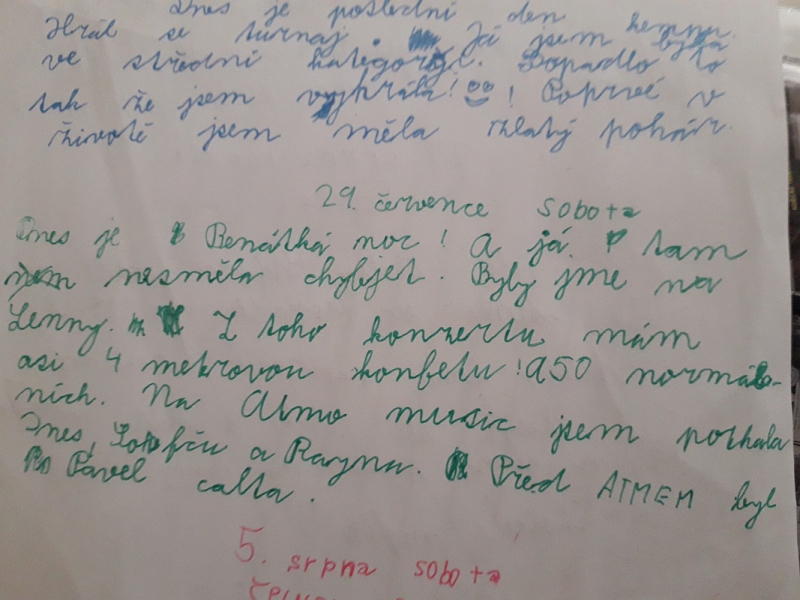 Dnes je poslední den kempu.
Hrál se turnaj. Já jsem byla
ve střední kategorii. Dopadlo to
tak že jsem vyhrála! ! Poprvé v
životě jsem měla zlatý pohár.
29. července sobota
Dnes je Benátská noc! A já tam
nesměla chybjet. Byly jme na
Lenny. Z toho konzertu mám
asi 4 metrovou konfetu! A 50 normál-
ních. Na Atmo music jsem potkala
Ines, a Raynu. Před ATMEM byl
Pavel calta.
5. srpna sobota